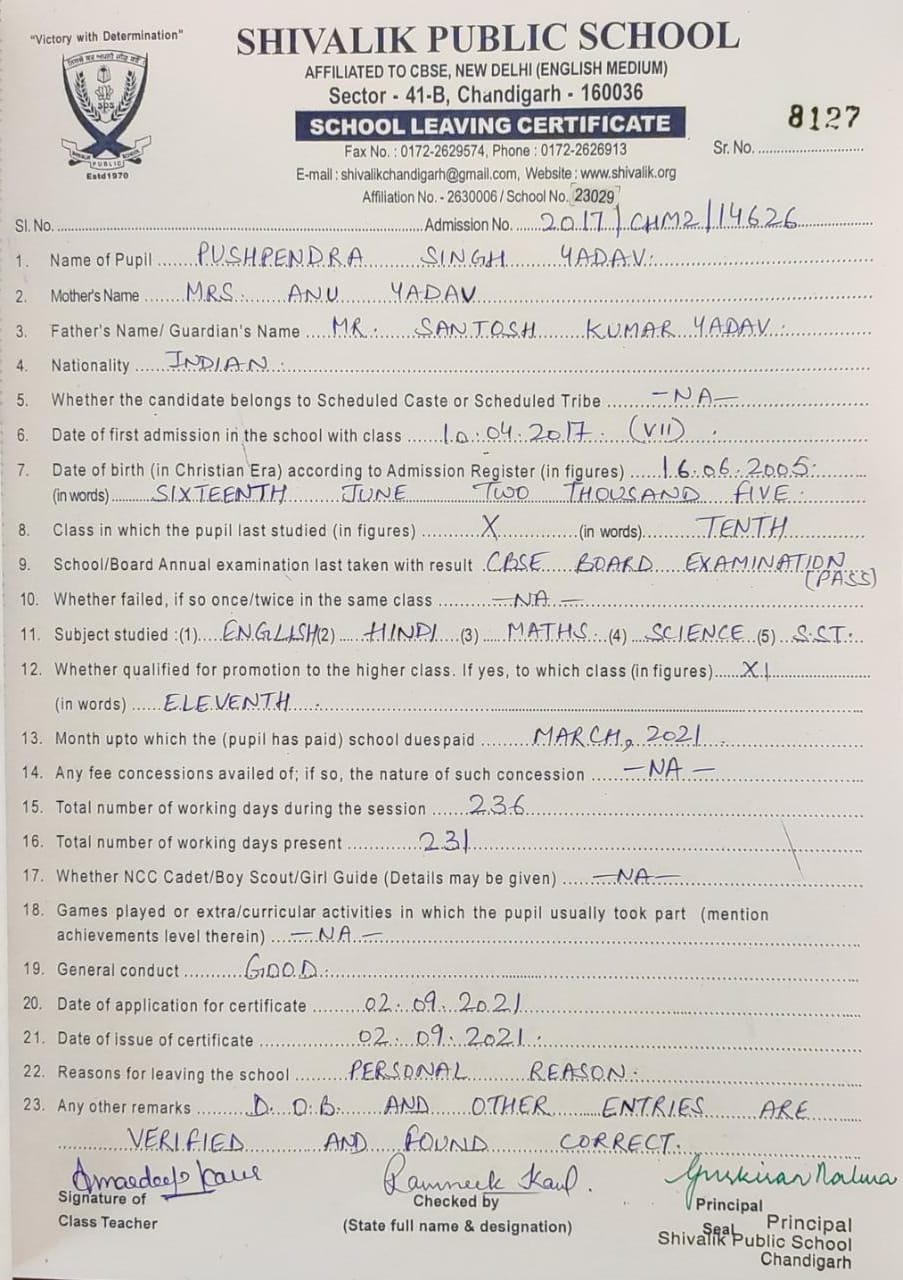 "Victory with Determination"
SHIVALIK PUBLIC SCHOOL
AFFILIATED TO CBSE, NEW DELHI (ENGLISH MEDIUM)
Sector - 41-B, Chandigarh - 160036
SCHOOL LEAVING CERTIFICATE
8127
Fax No. : 0172-2629574, Phone : 0172-2626913
Sr. No. ..........
E-mail : shivalikchandigarh@gmail.com, Website : www.shivalik.org
Affiliation No. - 2630006 / School No. 23029
sps
SHIVALIK PUBLIC SCHOOL
Estd 1970
Sl. No. .......... Admission No. 2017/CHM2/14626
1. Name of Pupil PUSHPENDRA SINGH YADAV.
2. Mother's Name MRS. ANU YADAV
3. Father's Name/ Guardian's Name MR. SANTOSH KUMAR YADAV.
4. Nationality INDIAN.
5. Whether the candidate belongs to Scheduled Caste or Scheduled Tribe —NA—
6. Date of first admission in the school with class 10.04.2017. (VII).
7. Date of birth (in Christian Era) according to Admission Register (in figures) 16.06.2005.
(in words) SIXTEENTH JUNE TWO THOUSAND FIVE.
8. Class in which the pupil last studied (in figures) X (in words) TENTH
9. School/Board Annual examination last taken with result CBSE BOARD EXAMINATION
(PASS)
10. Whether failed, if so once/twice in the same class —NA—
11. Subject studied :(1) ENGLISH (2) HINDI (3) MATHS. (4) SCIENCE (5) S.ST.
12. Whether qualified for promotion to the higher class. If yes, to which class (in figures) XI
(in words) ELEVENTH.
13. Month upto which the (pupil has paid) school duespaid MARCH, 2021.
14. Any fee concessions availed of; if so, the nature of such concession —NA—
15. Total number of working days during the session 236
16. Total number of working days present 231
17. Whether NCC Cadet/Boy Scout/Girl Guide (Details may be given) —NA—
18. Games played or extra/curricular activities in which the pupil usually took part (mention
achievements level therein) —NA—
19. General conduct GOOD.
20. Date of application for certificate 02.09.2021
21. Date of issue of certificate 02.09.2021.
22. Reasons for leaving the school PERSONAL REASON.
23. Any other remarks D.O.B. AND OTHER ENTRIES ARE
VERIFIED AND FOUND CORRECT.
Amardeep Kaur Ramneek Kaul.
Signature of Checked by Principal
Class Teacher (State full name & designation) Seal
Principal
Shivalik Public School
Chandigarh